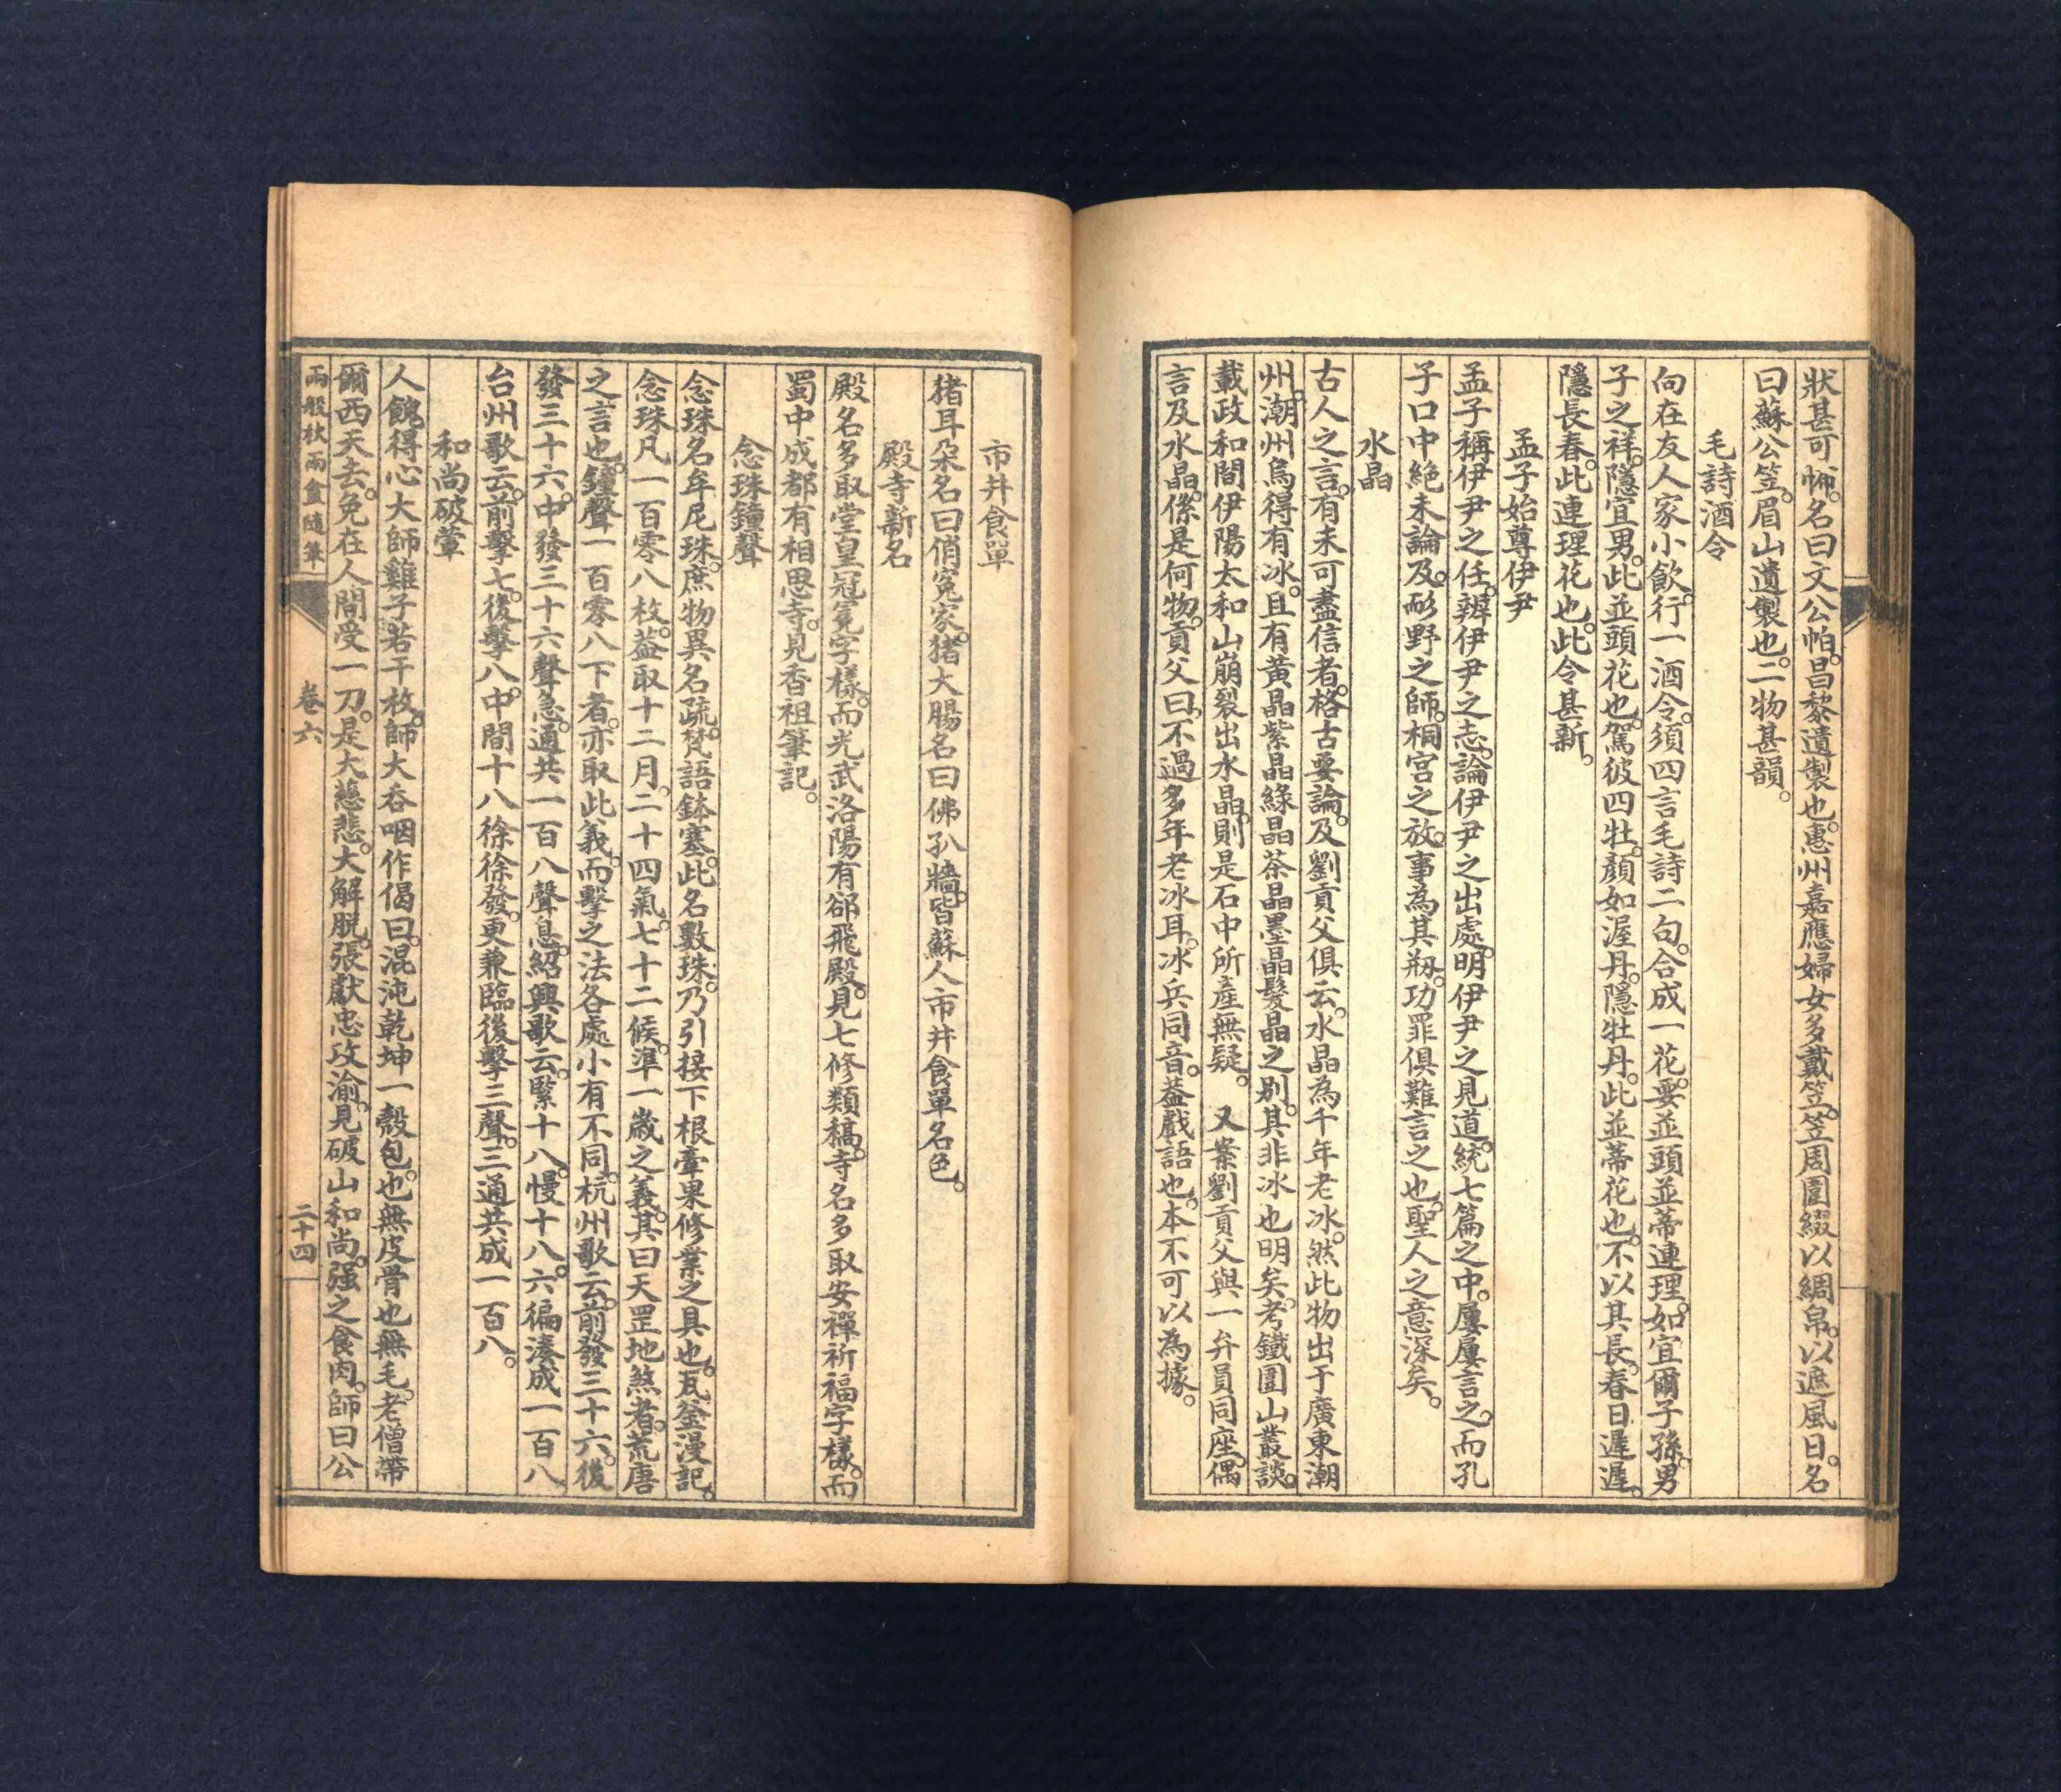 狀甚可怖。名曰文公帕。昌黎遺製也。惠州嘉應婦女多戴笠。笠周圍綴以綢帛。以遮風日。名
曰蘇公笠。眉山遺製也。二物甚韻。
毛詩酒令
向在友人家小飲。行一酒令。須四言毛詩二句。合成一花。要並頭並蒂連理。如宜爾子孫。男
子之祥。隱宜男。此並頭花也。駕彼四牡。顏如渥丹。隱牡丹。此並蒂花也。不以其長。春日遲遲。
隱長春。此連理花也。此令甚新。
孟子始尊伊尹
孟子稱伊尹之任。辨伊尹之志。論伊尹之出處。明伊尹之見道。統七篇之中。屢屢言之。而孔
子口中絕未論及。耏野之師。桐宮之放。事為其剏。功罪俱難言之也。聖人之意深矣。
水晶
古人之言。有未可盡信者。格古要論。及劉貢父俱云。水晶為千年老冰。然此物出于廣東潮
州。潮州烏得有冰。且有黃晶紫晶綠晶茶晶墨晶髮晶之别。其非冰也明矣。考鐵圍山叢談。
載政和間伊陽太和山崩裂出水晶。則是石中所產無疑。　又案劉貢父與一弁員同座。偶
言及水晶。傺是何物。貢父曰。不過多年老冰耳。冰兵同音。葢戲語也。本不可以為據。
市井食單
猪耳朵名曰俏冤家。猪大腸名曰佛扒牆。皆蘇人市井食單名色。
殿寺新名
殿名多取堂皇冠冕字樣。而光武洛陽有郤飛殿。見七修類稿。寺名多取安禪祈福字樣。而
蜀中成都有相思寺。見香祖筆記。
念珠鐘聲
念珠名牟尼珠。庶物異名疏。梵語鉢塞。此名數珠。乃引接下根牽果修業之具也。瓦釜漫記。
念珠凡一百零八枚。葢取十二月。二十四氣。七十二候。準一歲之義。其曰天罡地煞者。荒唐
之言也。鐘聲一百零八下者。亦取此義。而擊之法各處小有不同。杭州歌云。前發三十六。後
發三十六。中發三十六聲急。通共一百八聲息。紹興歌云。緊十八。慢十八。六徧湊成一百八。
台州歌云。前擊七。後擊八。中間十八徐徐發。更兼臨後擊三聲。三通共成一百八。
和尚破葷
人餽得心大師雞子若干枚。師大吞咽作偈曰。混沌乾坤一殼包。也無皮骨也無毛。老僧帶
爾西天去。免在人間受一刀。是大慈悲。大解脫。張獻忠攻渝。見破山和尚。强之食肉。師曰公
兩般秋雨盦隨筆
卷六
二十四